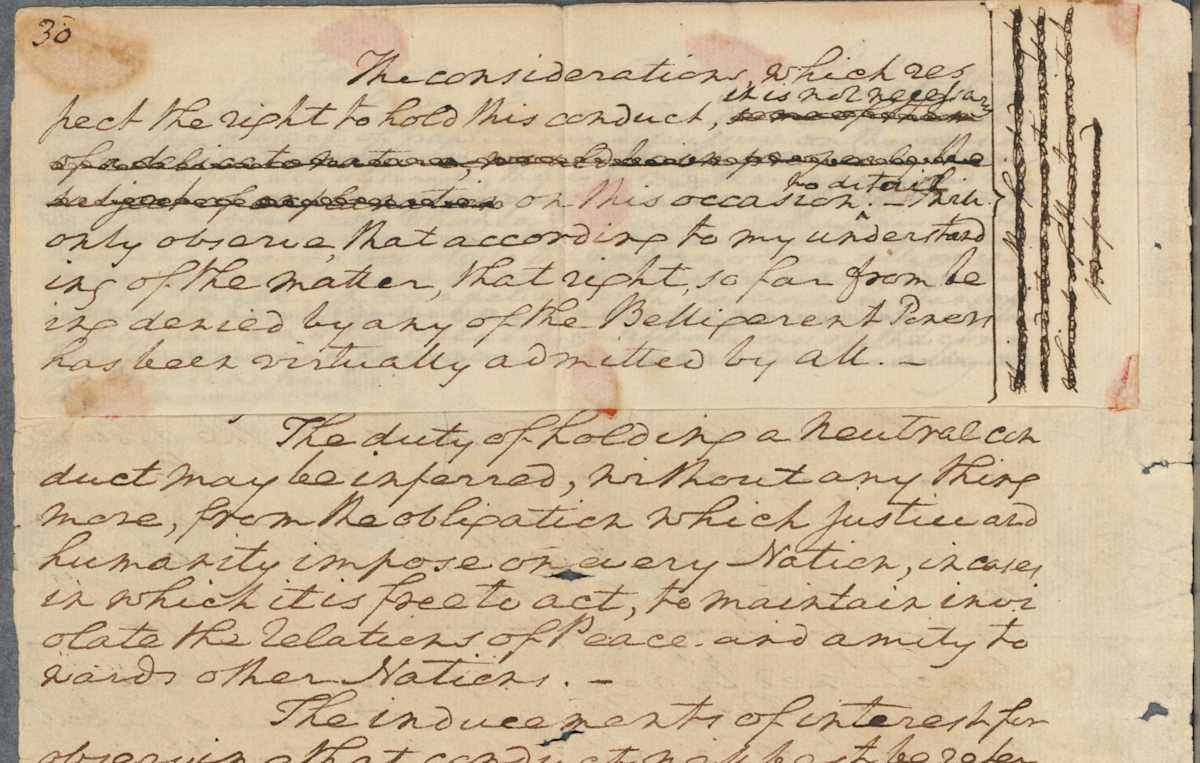 30
The considerations, which res
pect the right to hold this conduct, it is not necessary
some of them
of a delicate nature, would be improperly the
subject of explanation on this occasion. to detail – I will
only observe, that according to my understand
ing of the matter, that right, so far from be
ing denied by any of the Belligerent Powers
has been virtually admitted by all. –
The duty of holding a neutral con
duct may be inferred, without any thing
more, from the obligation which justice and
humanity impose on every Nation, in cases
in which it is free to act, to maintain invi
olate the relations of Peace and amity to
wards other Nations. –
The inducements of interest for
observing that conduct will best be refer